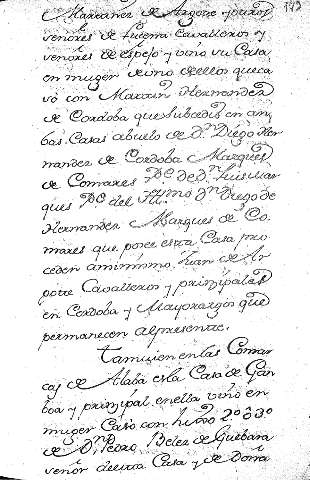 Martinez de Argote y otros
señores de Lucena Cavalleros y
señores de espejo y vino su Casa
en muger de uno de ellos que ca
só con Martin Hernandez
de Cordoba que subcedió en am
bas Casas abuelo de Dn Diego Her
nandez de Cordoba Marques
de Comares Pe de Dn Luis Mar
ques Pe del Illmo Dn Diego de
Hernandez Marques de Co
mares que por esta Casa pro
ceden asimismo Juan de Ar
gote Cavalleros y principales
en Cordoba y Mayorazgos que
permanecen al presente.
Tamvien en las Comar
cas de Alaba es la Casa de Gan
boa y principal en ella vino en
muger Caso con hijo 2º o 3º
de Dn Pedro Belez de Guebara
señor de esta Casa y de Doña